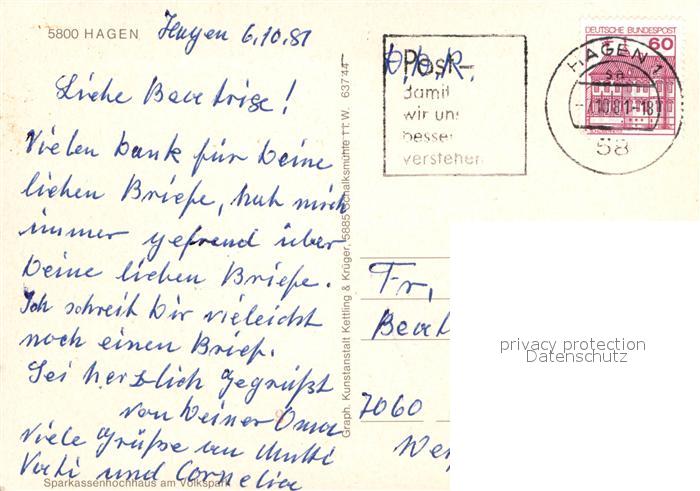 5800 HAGEN
Hagen 6.10.81
Liebe Beatrise!
Vielen Dank für Deine
lieben Briefe, hab mich
immer gefreud über
Deine lieben Briefe.
Ich schreib Dir vieleicht
noch einen Brief.
Sei herzlich gegrüßt
von Deiner Oma
Viele Grüße an Mutti
Vati und Cornelia
Sparkassenhochhaus am Volkspark
Graph. Kunstanstalt Kettling & Krüger, 5885 Schalksmühle 11 W. 63744
Post-
damit
wir uns
besser
verstehen
DEUTSCHE BUNDESPOST
60
HAGEN 1
-7.10.81-18
58
Fr,
Beat
7060
privacy protection
Datenschutz